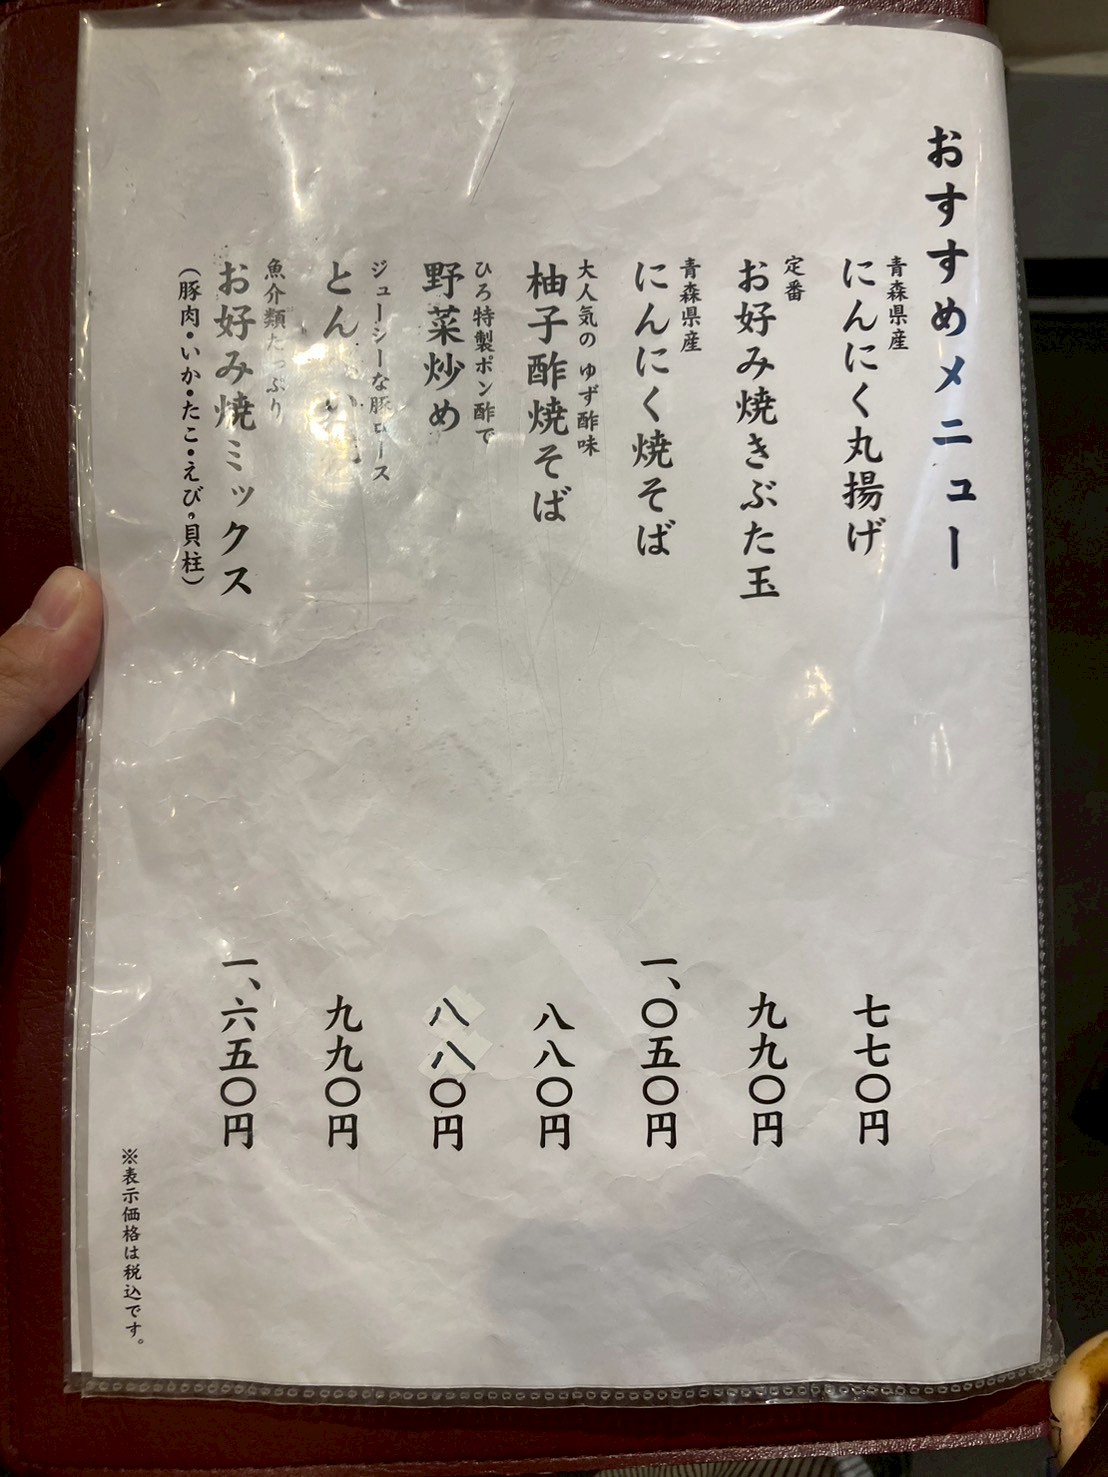 おすすめメニュー
青森県産
にんにく丸揚げ
七七〇円
定番
お好み焼きぶた玉
九九〇円
青森県産
にんにく焼そば
一、〇五〇円
大人気の ゆず酢味
柚子酢焼そば
八八〇円
ひろ特製ポン酢で
野菜炒め
八八〇円
ジューシーな豚ロース
とん
九九〇円
魚介類たっぷり
お好み焼ミックス
(豚肉・いか・たこ・えび。貝柱)
一、六五〇円
※表示価格は税込です。